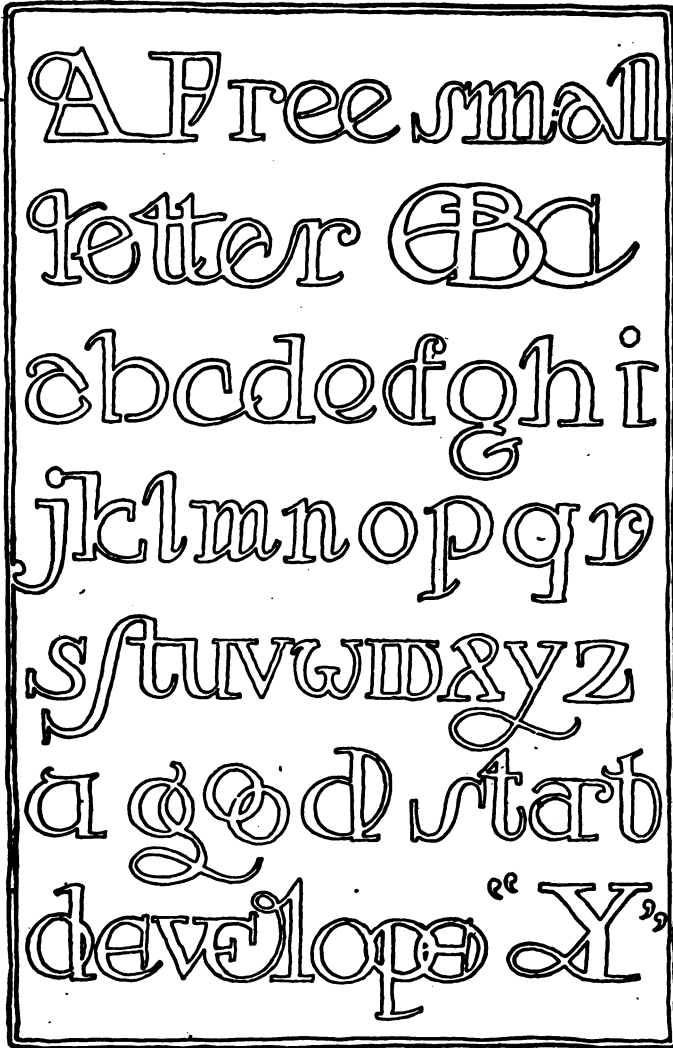 A Free small
letter ABC
abcdefghi
jklmnopqr
sſtuvwmxyz
a good start
develope "Y"